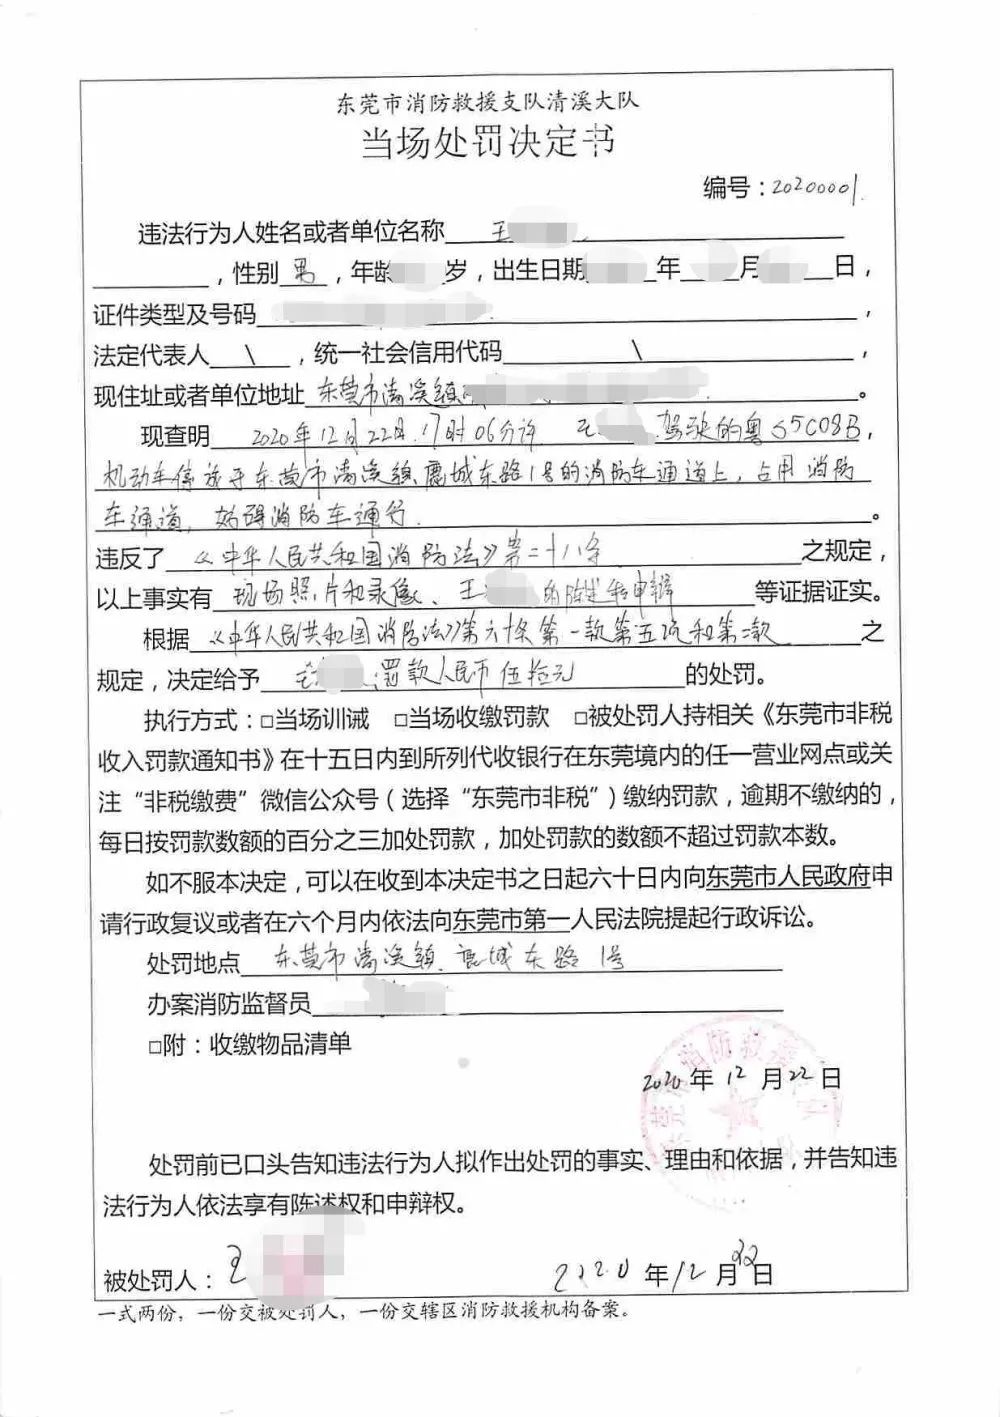 东莞市消防救援支队清溪大队
当场处罚决定书
编号：20200001
违法行为人姓名或者单位名称 王
，性别 男 ，年龄 岁，出生日期 年 月 日，
证件类型及号码 ，
法定代表人 \ ，统一社会信用代码 \ ，
现住址或者单位地址 东莞市清溪镇 。
现查明 2020年12月22日17时06分许 王 驾驶的粤S5C08B，
机动车停放于东莞市清溪镇鹿城东路1号的消防车通道上，占用消防
车通道，妨碍消防车通行 。
违反了 《中华人民共和国消防法》第二十八条 之规定，
以上事实有 现场照片和录像、王 的陈述和申辩 等证据证实。
根据 《中华人民共和国消防法》第六十条第一款第五项和第二款 之
规定，决定给予 王 罚款人民币伍拾元 的处罚。
执行方式：□当场训诫 □当场收缴罚款 □被处罚人持相关《东莞市非税
收入罚款通知书》在十五日内到所列代收银行在东莞境内的任一营业网点或关
注“非税缴费”微信公众号（选择“东莞市非税”）缴纳罚款，逾期不缴纳的，
每日按罚款数额的百分之三加处罚款，加处罚款的数额不超过罚款本数。
如不服本决定，可以在收到本决定书之日起六十日内向东莞市人民政府申
请行政复议或者在六个月内依法向东莞市第一人民法院提起行政诉讼。
处罚地点 东莞市清溪镇鹿城东路1号
办案消防监督员
□附：收缴物品清单
2020年12月22日
处罚前已口头告知违法行为人拟作出处罚的事实、理由和依据，并告知违
法行为人依法享有陈述权和申辩权。
被处罚人：王 2020年12月22日
一式两份，一份交被处罚人，一份交辖区消防救援机构备案。